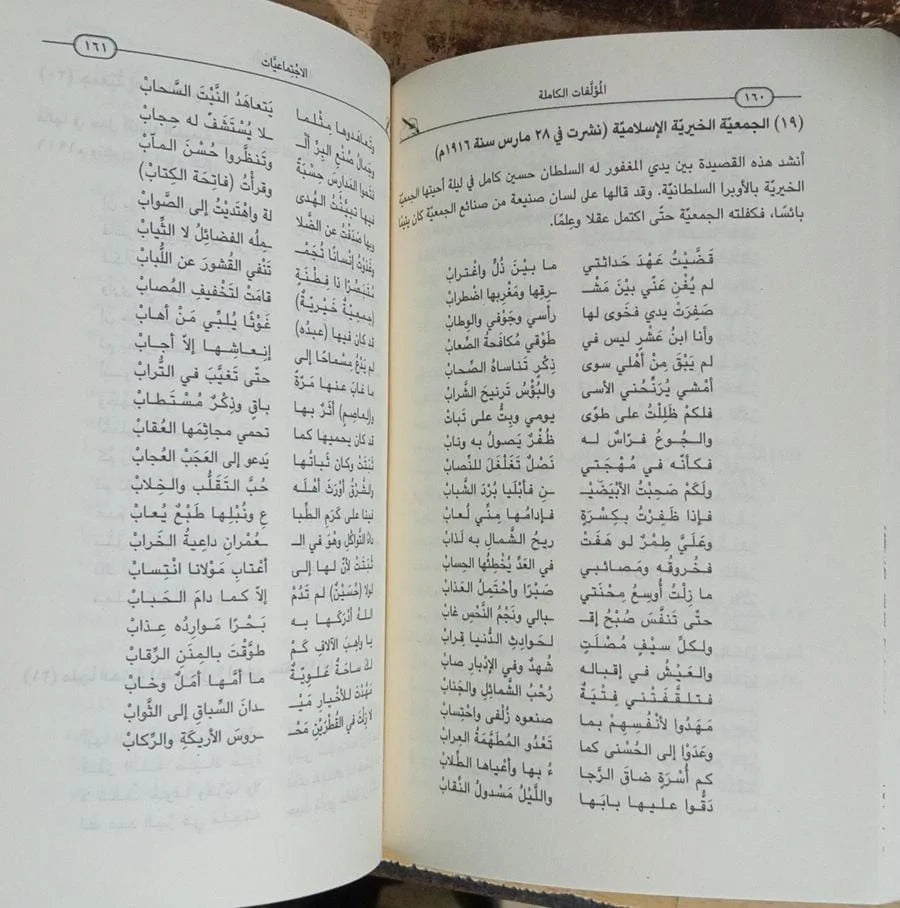 المُؤلَّفات الكاملة
١٦٠
(١٩) الجمعيّة الخيريّة الإسلاميّة (نشرت في ٢٨ مارس سنة ١٩١٦م)
أنشد هذه القصيدة بين يدي المغفور له السلطان حسين كامل في ليلة أحيتها الجمعيّة
الخيريّة بالأوبرا السلطانيّة. وقد قالها على لسان صنيعة من صنائع الجمعيّة كان يتيمًا
بائسًا، فكفلته الجمعيّة حتّى اكتمل عقلا وعِلمًا.
قَضَّيْتُ عَهْدَ حَداثتي ما بيْنَ ذُلٍّ واغْترابْ
لم يُغْنِ عَنّي بيْنَ مَشْـ ـرِقِها ومَغْرِبها اضْطرابْ
صَفِرَتْ يدي فخَوى لها رأسي وجَوْفي والوِطابْ
وأنا ابنُ عَشْرٍ ليس في طَوْقي مُكافَحةُ الصِّعابْ
لم يَبْقَ مِنْ أهْلي سوى ذِكْرٍ تَناساهُ الصِّحابْ
أمْشي يُرَنِّحُني الأسى والبُؤْسُ تَرنيحَ الشَّرابْ
فلكمْ ظَلِلْتُ على طَوًى يومي وبِتُّ على تَبابْ
والجُوعُ فَرّاسٌ له ظُفْرٌ يَصولُ به ونابْ
فكأنّه في مُهْجَتي نَصْلٌ تَغَلْغَلَ للنِّصابْ
ولَكَمْ صَحِبْتُ الأبْيَضَيْـ ـنِ فأبْلَيا بُرْدَ الشَّبابْ
فإذا ظَفِرْتُ بكِسْرَةٍ فإدامُها مِنِّي لُعابْ
وعَليَّ طِمْرٌ لو هَفَتْ ريحُ الشَّمالِ به لَذابْ
فخُروقُه ومَصائبي في العَدِّ يُخْطِئُها الحِسابْ
ما زِلْتُ أُوسِعُ مِحْنَتي صَبْرًا وأحْتَمِلُ العَذابْ
حتّى تَنفَّسَ صُبْحُ إقـ ـبالي ونَجْمُ النَّحْسِ غابْ
ولكلِّ سيْفٍ مُصْلَتٍ لحَوادِثِ الدُّنيا قِرابْ
والعَيْشُ في إقباله شُهدٌ وفي الإدْبارِ صابْ
فتلقَّفَتْني فِتْيَةٌ رُحْبُ الشَّمائلِ والجَنابْ
مَهَدُوا لأنْفُسِهِمْ بما صنعوه زُلْفى واحْتِسابْ
وعَدَوْا إلى الحُسْنى كما تَعْدُو المُطَهَّمَةُ العِرابْ
كم أُسْرَةٍ ضاقَ الرَّجا ءُ بها وأعْياها الطِّلابْ
دَقُّوا عليها بابَها واللَّيْلُ مَسْدولُ النِّقابْ
الاجْتِماعيَّات
١٦١
وتَعاهَدوها مِثْلما يَتعاهَدُ النَّبْتَ السَّحابْ
وجَمالُ صُنْعِ البِرِّ ألّـ ـلا يُسْتَشَفَّ له حِجابْ
فتحوا المَدارِسَ حِسْبَةً وتَنظَّروا حُسْنَ المآبْ
فيها تبيَّنْتُ الهُدى وقرأتُ (فاتِحَةَ الكِتابْ)
وبها صَدَفْتُ عن الضَّلا لة واهْتَدَيْتُ إلى الصَّوابْ
وغَدَوْتُ إنْسانًا تُجَمْـ ـمِلُه الفَضائلُ لا الثِّيابْ
مُتَبَصِّرًا ذا فِطْنَةٍ تَنْفي القُشورَ عن اللُّبابْ
(جمعيّةٌ خَيْريّةٌ) قامَتْ لتَخْفيفِ المُصابْ
قد كان فيها (عبدُه) غَوْثًا يُلبِّي مَنْ أهابْ
لم يَدْعُ مِسْماحًا إلى إنْعاشِها إلاّ أجابْ
ما غابَ عنها مَرّةً حتّى تَغيَّبَ في التُّرابْ
و(لعاصِمٍ) أثَرٌ بها باقٍ وذِكْرٌ مُسْتَطابْ
قد كان يحميها كما تحمي مجاثِمَها العُقابْ
ثَبَتَتْ وكان ثَباتُها يَدعو إلى العَجَبِ العُجابْ
والشَّرْقُ أوْرَثَ أهْلَه حُبَّ التَقَلُّبِ والخِلابْ
فينا على كَرَمِ الطِّبا عِ ونُبْلِها طَبْعٌ يُعابْ
داءُ التَّواكُلِ وهْوَ في الـ ـعُمْرانِ داعيةُ الخَرابْ
ثَبَتَتْ لأنّ لها إلى أعْتابِ مَوْلانا انْتِسابْ
لولا (حُسَيْنٌ) لم تَدُمْ إلاّ كما دامَ الحَبابْ
اللهُ أدْرَكَها به بَحْرًا مَوارِدُه عِذابْ
يا واهِبَ الآلافِ كَمْ طوَّقْتَ بالمِنَنِ الرِّقابْ
لك ساحَةٌ عَلَويّةٌ ما أمَّها أمَلٌ وخابْ
مَهَّدْتَ للأخْيارِ مَيْـ ـدانَ السِّباقِ إلى الثَّوابْ
لا زِلْتَ في القُطْرَيْنِ مَحْـ ـروسَ الأريكَةِ والرِّكابْ